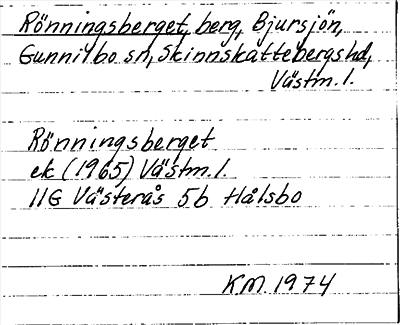 Rönningsberget, berg, Bjursjön,
Gunnilbo sn, Skinnskattebergs hd,
Västm. l.
Rönningsberget
ek (1965) Västm. l.
11G Västerås 5b Hålsbo
K.M. 1974